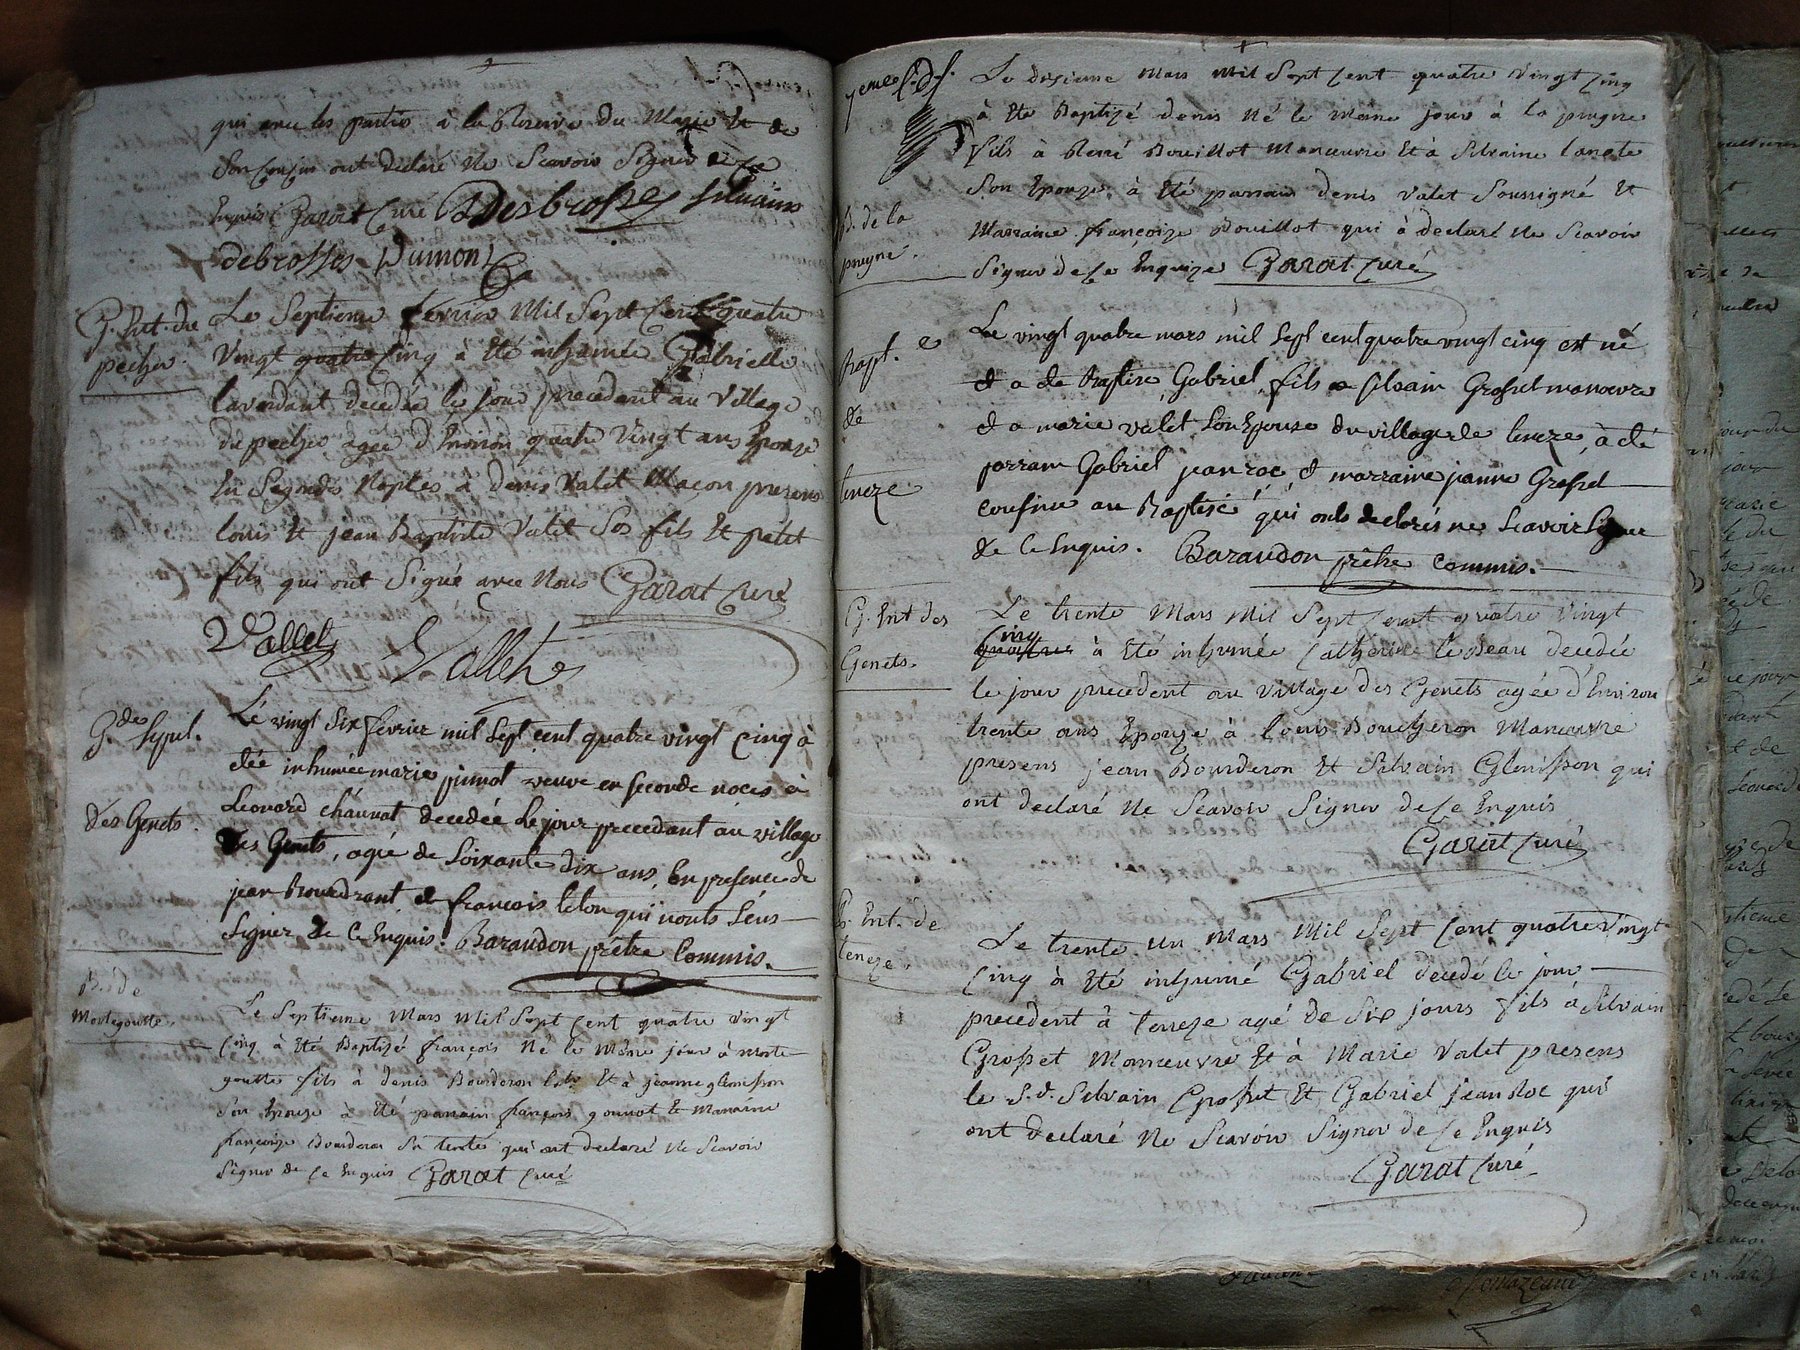 qui avec les parties à la Reserve du Marié Et de
Son Cousin ont declaré Ne Scavoir Signer de Ce
Enquis Garat Curé Desbrosses silvain
debrosses Dumont
G. Ent. du
pecher
Le Septieme fevrier Mil Sept Cent quatre
Vingt quatre Cinq à Eté inhumée Gabrielle
Lavardant decedée le jour precedent au Village
du pecher agée d'Environ quatre Vingt ans Epouse
En Segondes Noples à Denis Valet Maçon presens
louis Et jean Baptiste Valet Ses fils Et petit
fils qui ont Signé avec Nous Garat Curé
Vallet Vallet
G.de Sepul.
des Genets
Le vingt Six fevrier mil Sept cent quatre vingt Cinq à
été inhumée marie pinot veuve en seconde noces à
Leonard chaunat decedée le jour precedant au village
des Genets, agée de Soixante dix ans, En presence de
jean Boucdront et francois lelon qui nonts Seus
Signer de Ce Enquis. Barandon prêtre Commis.
B. de
Mortegoutte
Le Septieme Mars Mil Sept Cent quatre Vingt
Cinq à Eté Baptizé françois Né le Même jour à morte
goutte fils à denis Bourderon Et à jeanne glenisson
Son Epouse à Eté parrain françois gounot Et Marraine
françoize Bourderon Sa tente qui ont declaré Ne Scavoir
Signer de Ce Enquis Garat Curé
B. de la
prugne.
Le dixieme Mars Mil Sept Cent quatre Vingt Cinq
à Eté Baptizé denis Né le Meme jour à la prugne
fils à René Bouillot Manœuvre Et à Silvaine Lanete
Son Epouze à Eté parrain denis Valet Soussigné Et
Marraine françoize Bouillot qui à declaré Ne Scavoir
Signer de Ce Enquize Garat Curé
Bapt. e
de
tereze
Le vingt quatre mars mil Sept cent quatre vingt cinq est né
et a ete Baptisé Gabriel fils a silvain Grosset manoevre
et a marie valet Son Epouse du village de tereze, à eté
parrain Gabriel jeanroc, et marraine jeanne Grosset
cousine au Baptisé qui onts declarés ne Scavoir Signer
de Ce Enquis. Barandon prêtre Commis.
G. Ent des
Genets.
Le trente Mars Mil Sept Cent quatre Vingt
Cinq
à Eté inhumée Catherine le Beau decedée
le jour precedent au Village des Genets agée d'Environ
trente ans Epouze à louis Boucheron Manœuvre
presens jean Bourderon Et Silvain Glenisson qui
ont declaré Ne Scavoir Signer de Ce Enquis
Garat Curé
P. Ent. de
tereze.
Le trente Un Mars Mil Sept Cent quatre Vingt
Cinq à Eté inhumé Gabriel decedé le jour
precedent à tereze agé de Six jours fils à Silvain
Grosset Manœuvre Et à Marie Valet presens
le S.d. Silvain Grosset Et Gabriel jean Roc qui
ont declaré Ne Scavoir Signer de Ce Enquis
Garat Curé